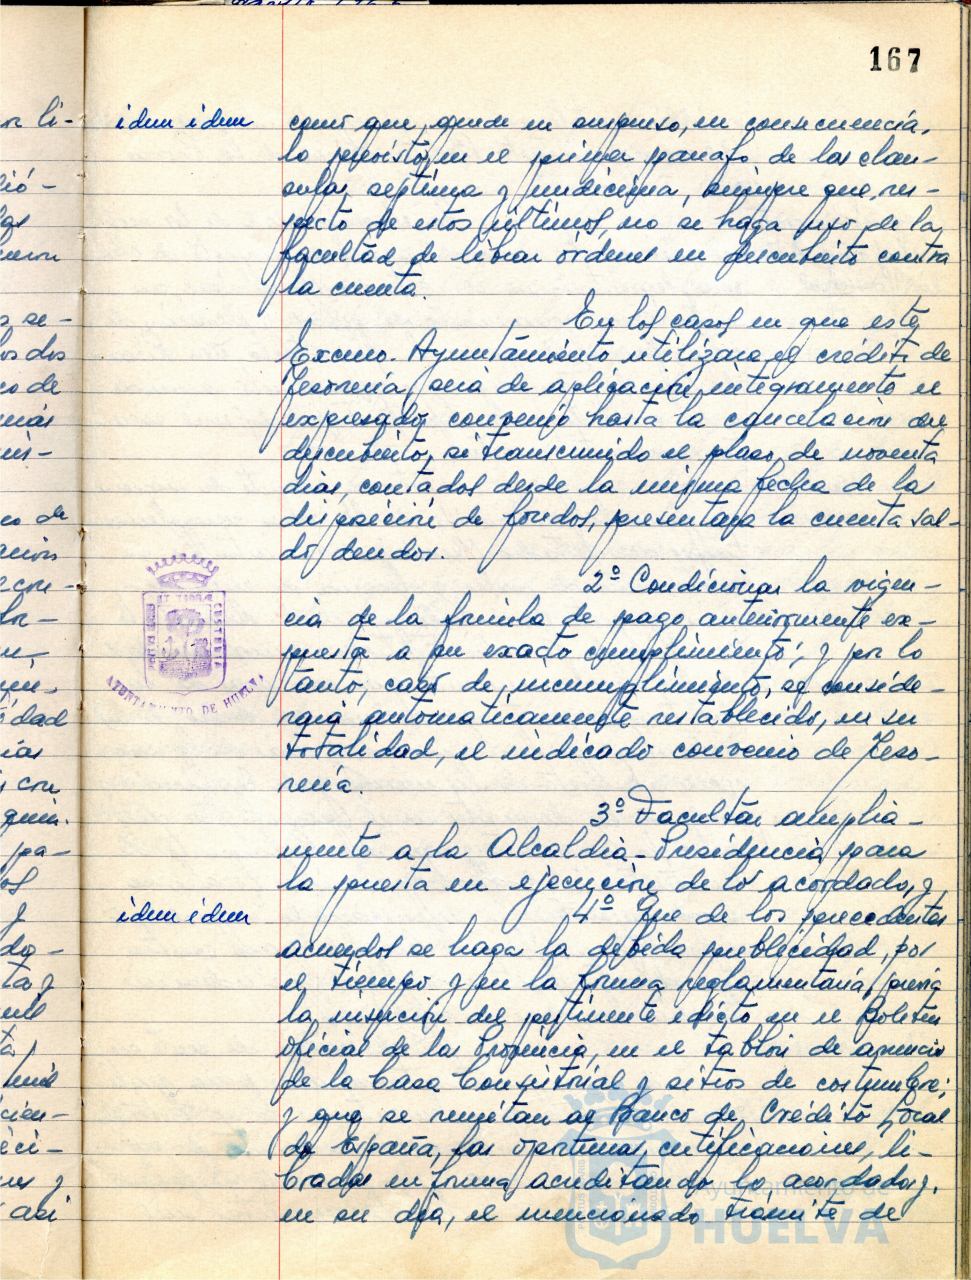 167
idem idem
como que, quede en suspenso, en consecuencia,
lo previsto en el primer párrafo de las cláu-
sulas séptima y undécima, siempre que, res-
pecto de estos últimos, no se haga uso de la
facultad de librar órdenes en descubierto contra
la cuenta.
En los casos en que este
Excmo. Ayuntamiento utilizara el crédito de
Tesorería, será de aplicación íntegramente el
expresado convenio hasta la cancelación del
descubierto, si transcurrido el plazo de noventa
días, contados desde la misma fecha de la
disposición de fondos, presentara la cuenta sal-
do deudor.
2º Condicionar la vigen-
cia de la fórmula de pago anteriormente ex-
puesta a su exacto cumplimiento; y por lo
tanto, caso de incumplimiento, se conside-
rará automáticamente restablecido, en su
totalidad, el indicado convenio de Teso-
rería.
3º Facultar amplia-
mente a la Alcaldía-Presidencia para
la puesta en ejecución de lo acordado, y,
idem idem
4º Que de los precedentes
acuerdos se haga la debida publicidad, por
el tiempo y en la forma reglamentaria, previa
la inserción del pertinente edicto en el Boletín
oficial de la Provincia, en el tablón de anuncios
de la Casa Consistorial y sitios de costumbre;
y que se remitan al Banco de Crédito Local
de España, las oportunas certificaciones, li-
bradas en forma, acreditando lo acordado y,
en su día, el mencionado trámite de
AYUNTAMIENTO DE HUELVA
Ayuntamiento de
HUELVA